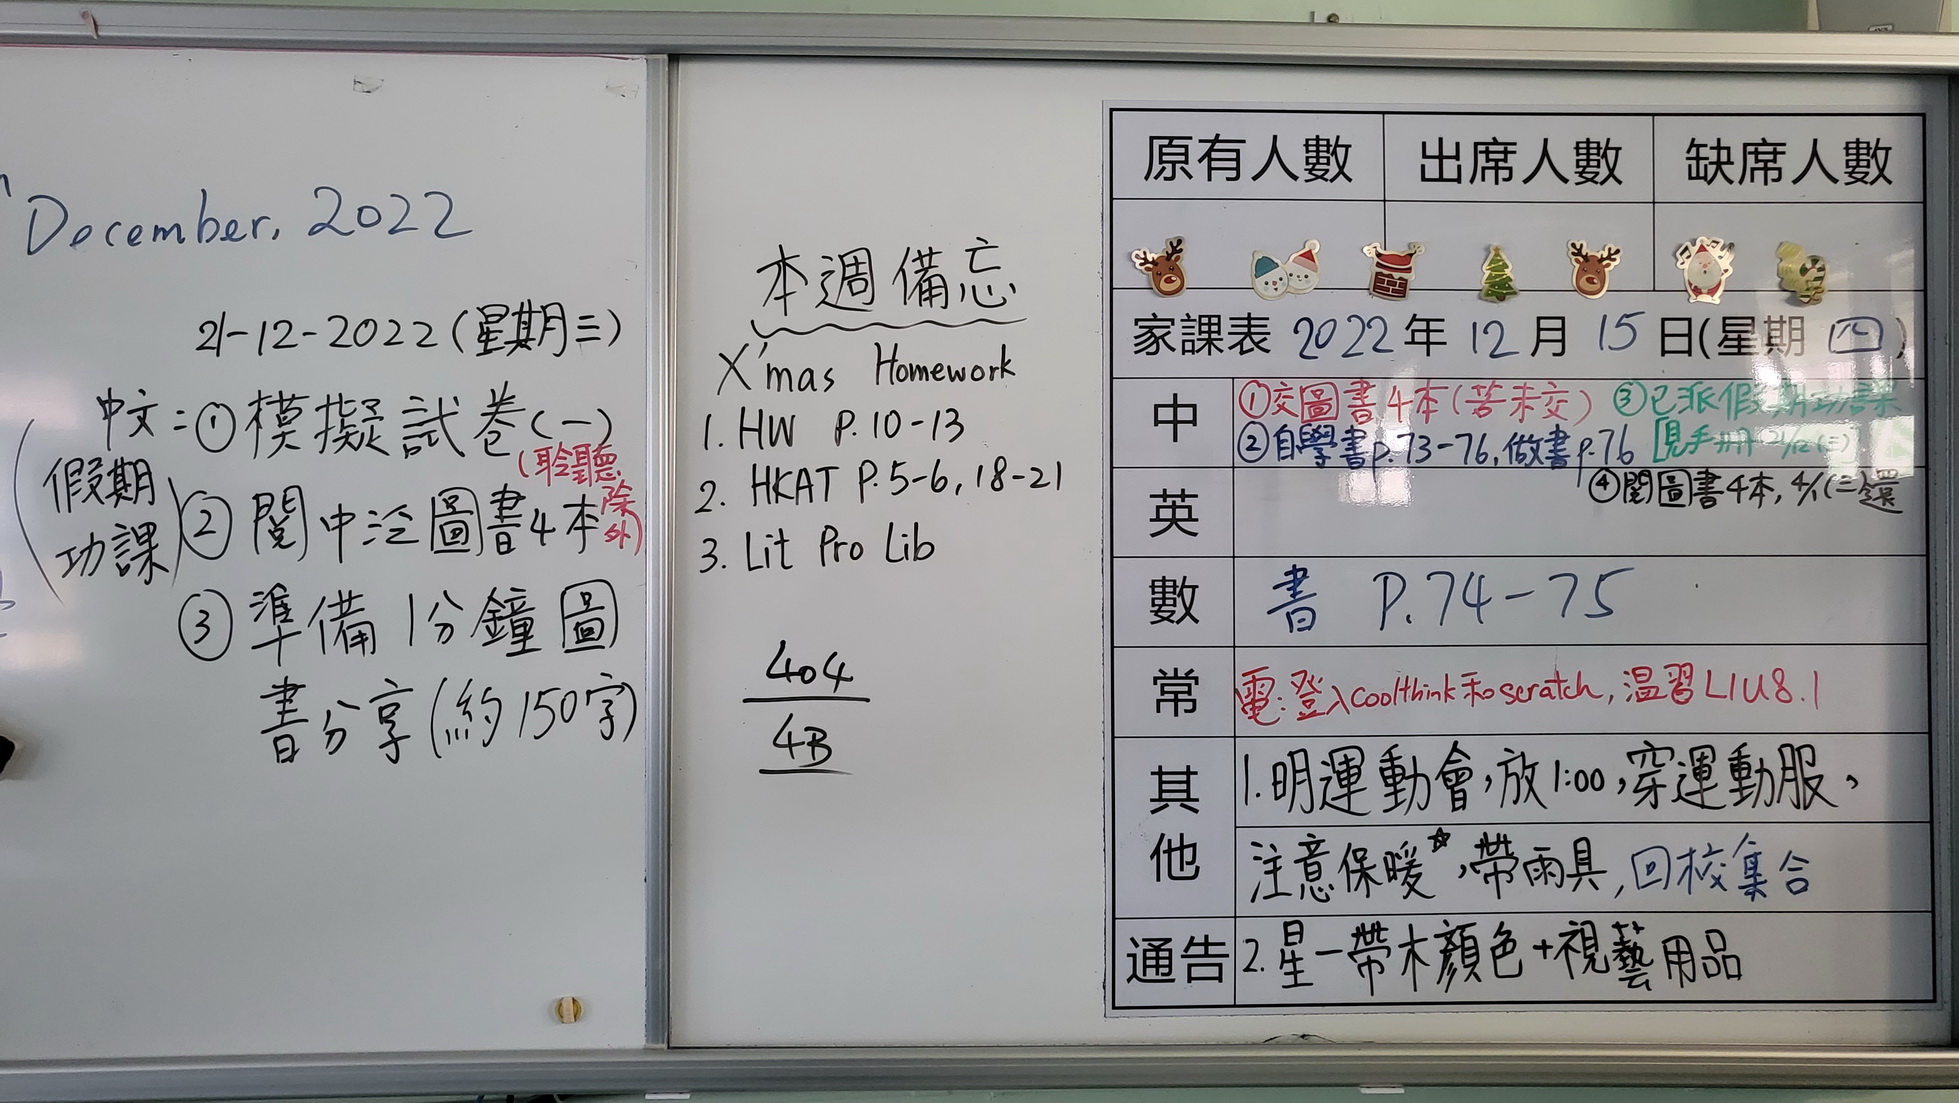 December, 2022
21-12-2022(星期三)
中文:①模擬試卷(一)
(聆聽除外)
(假期功課)
②閱中泛圖書4本
③準備1分鐘圖
書分享(約150字)
本週備忘
X'mas Homework
1. HW P.10-13
2. HKAT P.5-6, 18-21
3. Lit Pro Lib
404
4B
原有人數 出席人數 缺席人數
家課表 2022年 12月 15日(星期 四)
中 ①交圖書4本(若未交) ③已派假期功課
②自學書p.73-76,做書p.76 [見手冊21/12(三)
④閱圖書4本, 4/1(三)還
英
數 書 P.74-75
常 電:登入coolthink和scratch,温習L1U8.1
其他 1.明運動會,放1:00,穿運動服,
注意保暖☆,帶雨具,回校集合
通告 2.星一帶木顏色+視藝用品